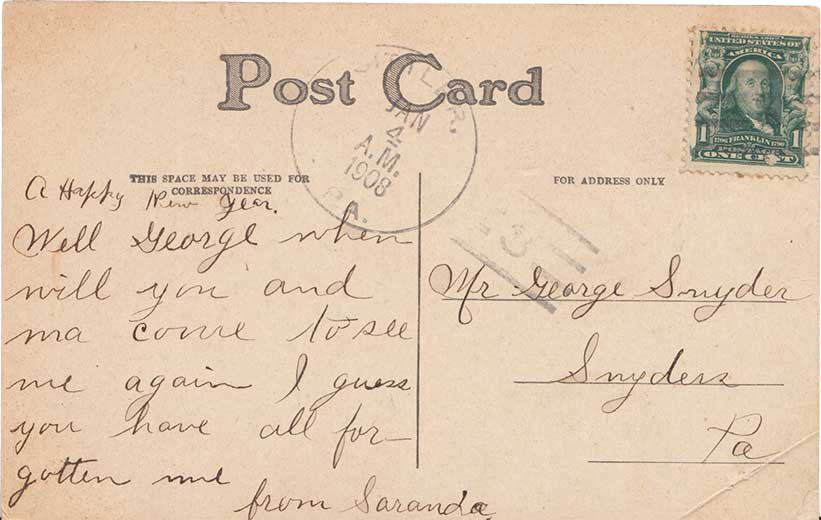 Post Card
JAN
4
A.M.
1908
PA.
SERIES 1902
UNITED STATES OF
AMERICA
1 1706 FRANKLIN 1790 1
POSTAGE
ONE CENT
THIS SPACE MAY BE USED FOR
CORRESPONDENCE
FOR ADDRESS ONLY
A Happy New Year.
Well George when
will you and
ma come to see
me again I guess
you have all for-
gotten me
from Saranda
3
Mr George Snyder
Snyders
Pa